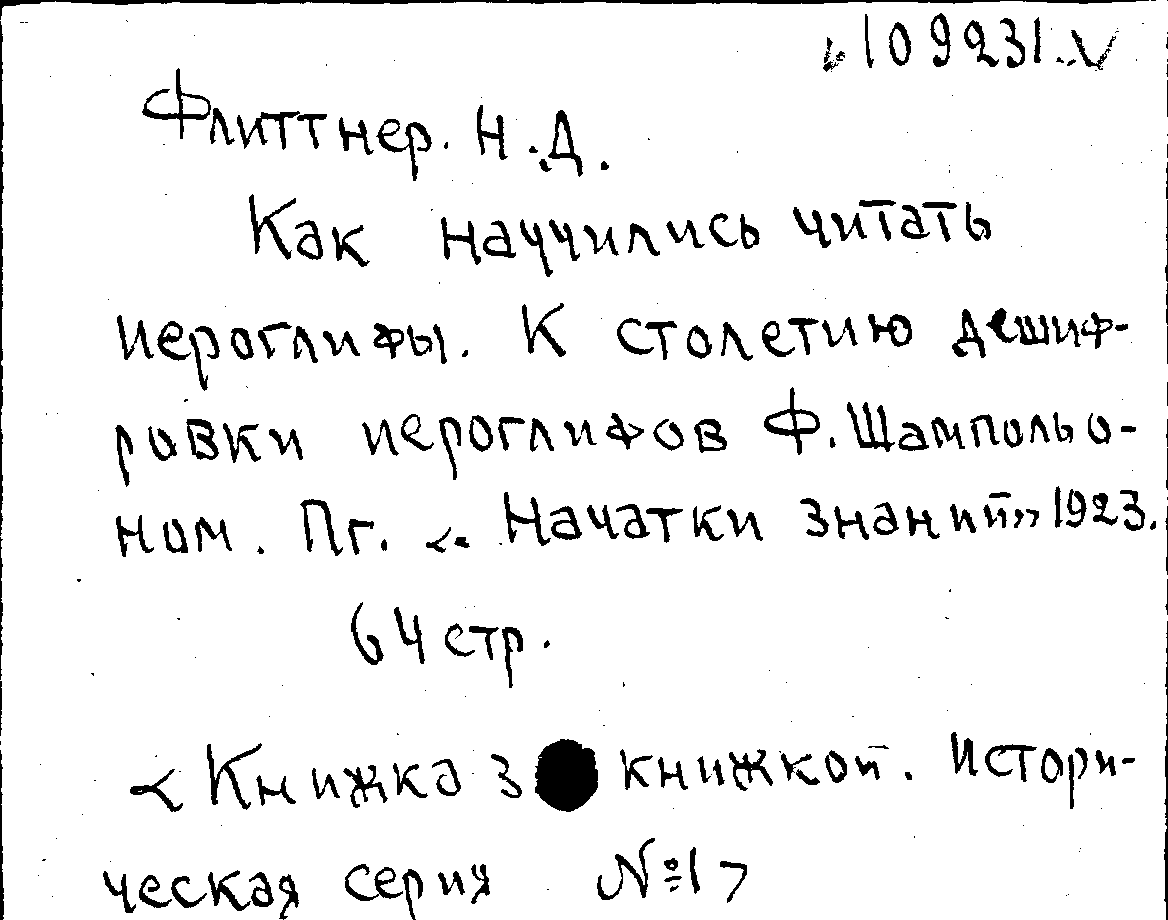 109231 V
Флиттнер. Н.Д.
Как научились читать
иероглифы. К столетию дешиф-
ровки иероглифов Ф. Шампольо-
ном. Пг. «Начатки знаний» 1923.
64 стр.
<Книжка з книжкой. Истори-
ческая серия №1>